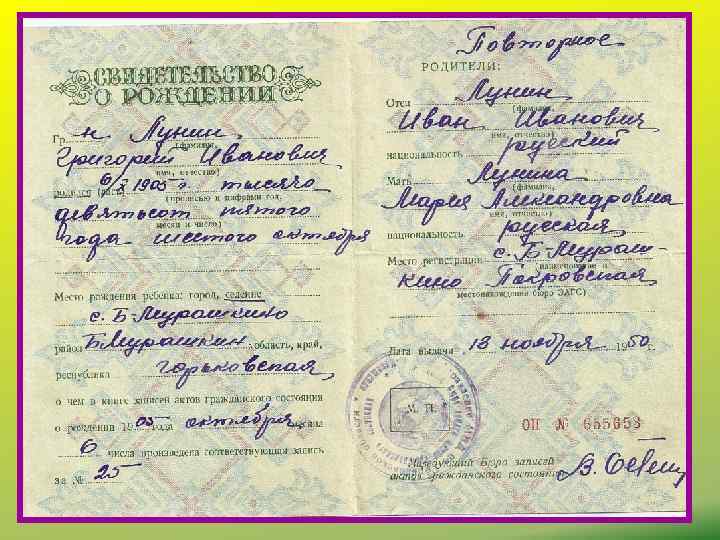 СВИДЕТЕЛЬСТВО
О РОЖДЕНИИ
Гр. н Лунин
(фамилия,
Григорий Иванович
имя, отчество)
родился (лась) 6/X 1905 г. тысяча
(прописью и цифрами год,
девятьсот пятого
месяц и число)
года шестого октября
Место рождения ребенка: город, селение
с. Б-Мурашкино
район Б Мурашкин область, край,
республика горьковская
о чем в книге записей актов гражданского состояния
о рождении 1905 года октября месяца
6 числа произведена соответствующая запись
за № 25
Повторное
РОДИТЕЛИ:
Отец Лунин
(фамилия,
Иван Иванович
имя, отчество)
национальность русский
Мать Лунина
(фамилия,
Мария Александровна
имя, отчество)
национальность русская
Место регистрации с. Б-Мураш-
(наименование и
кино Покровская
местонахождение бюро ЗАГС)
Дата выдачи 18 ноября 1950 г.
М. П.
ОП № 655653
Заведующий Бюро записей
актов гражданского состояния